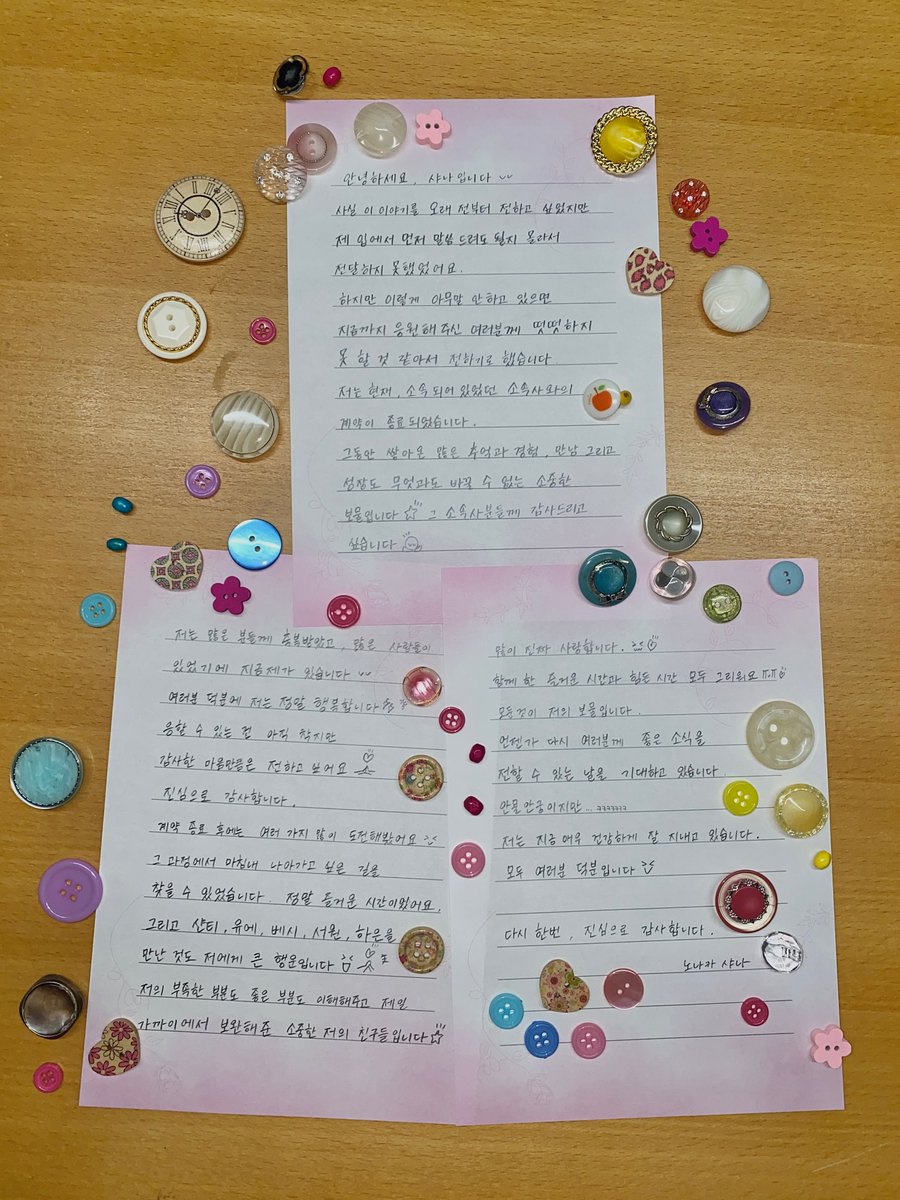 안녕하세요, 샤나입니다 ᵕᵕ
사실 이 이야기를 오래 전부터 전하고 싶었지만
제 입에서 먼저 말씀 드려도 될지 몰라서
전달하지 못했었어요.
하지만 이렇게 아무말 안하고 있으면
지금까지 응원해 주신 여러분께 떳떳하지
못 할 것 같아서 전하기로 했습니다.
저는 현재, 소속 되어 있었던 소속사와의
계약이 종료되었습니다.
그동안 쌓아온 많은 추억과 경험, 만남 그리고
성장도 무엇과도 바꿀 수 없는 소중한
보물입니다 그 소속사분들께 감사드리고
싶습니다
저는 많은 분들께 축복받았고, 많은 사람들이
있었기에 지금제가 있습니다 ᵕᵕ
여러분 덕분에 저는 정말 행복합니다
응할 수 있는 건 아직 작지만
감사한 마음만큼은 전하고 싶어요
진심으로 감사합니다.
계약 종료 후에는 여러 가지 많이 도전해봤어요
그 과정에서 마침내 나아가고 싶은 길을
찾을 수 있었습니다. 정말 즐거운 시간이었어요.
그리고 샨티, 유에, 베시, 서원, 하은을
만난 것도 저에게 큰 행운입니다
저의 부족한 부분도 좋은 부분도 이해해주고 제일
가까이에서 보완해준 소중한 저의 친구들입니다
많이 진짜 사랑합니다.
함께 한 즐거운 시간과 힘든 시간 모두 그리워요 ㅠㅠ
모든것이 저의 보물입니다.
언젠가 다시 여러분께 좋은 소식을
전할 수 있는 날을 기대하고 있습니다.
안물안궁이지만... ㅋㅋㅋㅋㅋㅋㅋ
저는 지금 매우 건강하게 잘 지내고 있습니다.
모두 여러분 덕분입니다
다시 한번, 진심으로 감사합니다.
노나카 샤나